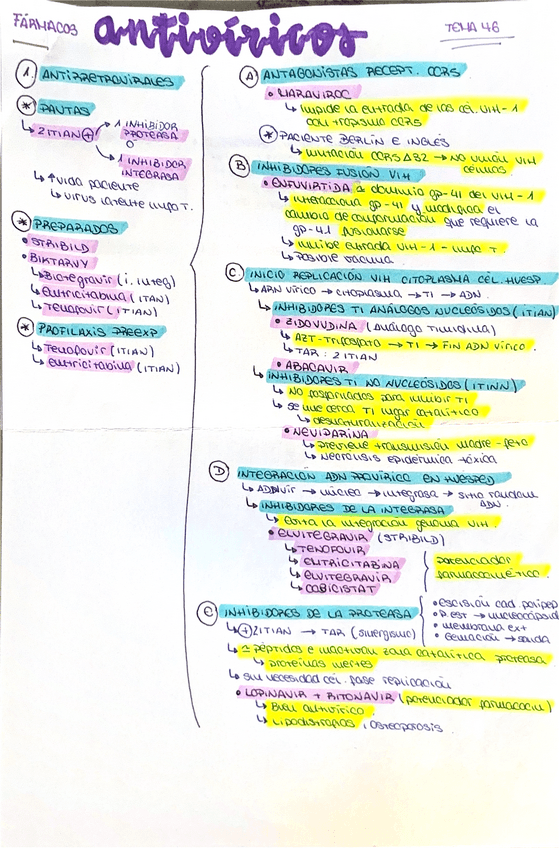 FÁRMACOS
antivíricos
TEMA 46
1. ANTIRRETROVIRALES
* PAUTAS
↳ 2 ITIAN ⊕
1 INHIBIDOR PROTEASA
O
1 INHIBIDOR INTEGRASA
↳ ↑ vida paciente
↳ virus latente
* PREPARADOS
• STRIBILD
• BIKTARVY
↳ Bictegravir (i. integ)
↳ Emtricitabina (ITIAN)
↳ Tenofovir (ITIAN)
* PROFILAXIS PREEXP
↳ Tenofovir (ITIAN)
↳ Emtricitabina (ITIAN)
A ANTAGONISTAS RECEPT. CCR5
• MARAVIROC
↳ impide la entrada de las cél. VIH-1
con tropismo CCR5
* PACIENTE BERLÍN E INGLÉS
↳ mutación CCR5 Δ32 → NO unión VIH
B INHIBIDORES FUSIÓN VIH
• ENFUVIRTIDA ≃ dominio gp-41 del VIH-1
↳ interacciona gp-41 y modifica el
cambio de conformación que requiere la
gp-41 fusionarse
↳ inhibe entrada VIH-1
↳ Posible vacuna
C INICIO REPLICACIÓN VIH CITOPLASMA CÉL. HUESP.
↳ ARN vírico → citoplasma → TI → ADN
↳ INHIBIDORES TI ANÁLOGOS NUCLEÓSIDOS (ITIAN)
• ZIDOVUDINA (análogo timidina)
↳ AZT-Trifosfato → TI → FIN ADN vírico
↳ TAR: 2 ITIAN
• ABACAVIR
↳ INHIBIDORES TI NO NUCLEÓSIDOS (ITINN)
↳ No fosforilados para inhibir TI
↳ se une cerca TI lugar catalítico
↳ desnaturalización
• NEVIPARINA
↳ previene transmisión madre-feto
↳ Necrólisis epidérmica tóxica
D INTEGRACIÓN ADN PROVÍRICO EN HUESPED
↳ ADNvir → núcleo → integrasa → sitio random
ADN
↳ INHIBIDORES DE LA INTEGRASA
↳ Evita la integración genoma VIH
• ELVITEGRAVIR (STRIBILD)
↳ TENOFOVIR
↳ EMTRICITABINA
↳ ELVITEGRAVIR
↳ COBICISTAT
potenciador
farmacocinético
E INHIBIDORES DE LA PROTEASA
• escisión cad. polipep
• P. EST → nucleocápside
• membrana ext
• Gemación → salida
↳ ⊕ 2 ITIAN → TAR (sinergismo)
↳ ≃ péptidos e inactivan zona catalítica proteasa
↳ proteínas inertes
↳ sin necesidad cél. fase replicación
• LOPINAVIR + RITONAVIR (potenciador farmacocin)
↳ Buen antivírico
↳ Lipodistrofias, osteoporosis